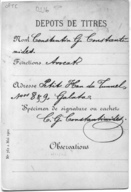 DÉPOTS DE TITRES
Nom Constantin G. Constanti-
nidès
Fonctions Avocat
Adresse Petit Han de Tunnel,
Nos 8 & 9, Galata
Spécimen de signature ou cachet:
C. G. Constantinidès
Observations